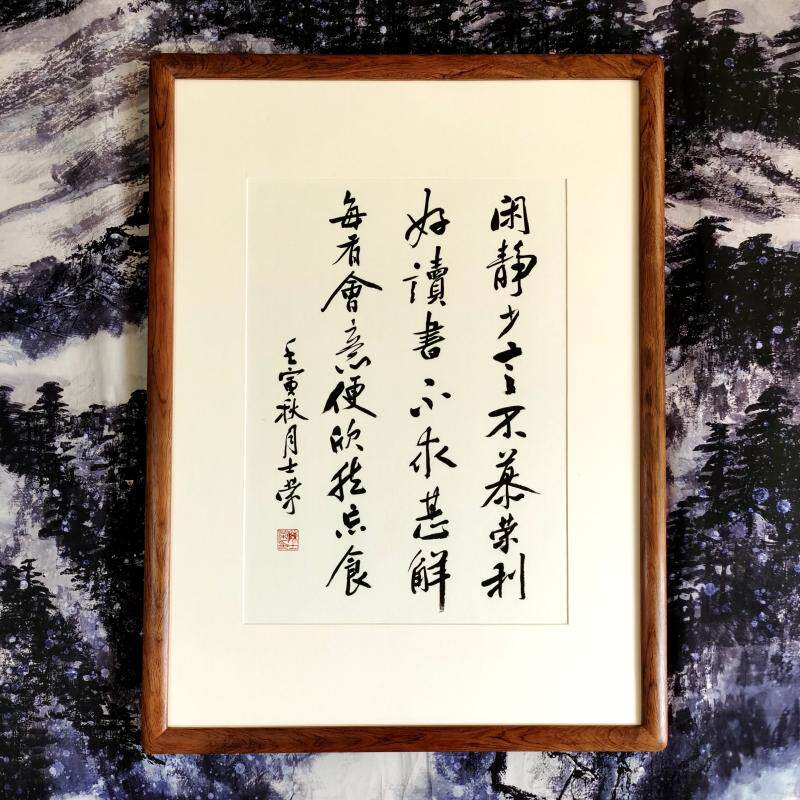 闲静少言不慕荣利
好讀書不求甚解
每看會意便欣然忘食
壬寅秋月士荣